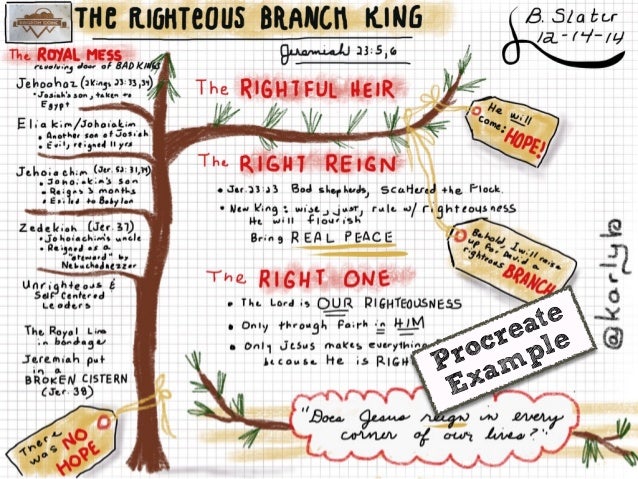 THE RIGHTEOUS BRANCH KING
Jeremiah 23:5,6
B. Slater
12-14-14
The ROYAL MESS
revolving door of BAD KINGS
Jehoahaz (2Kings 23:33,34)
• Josiah's son, taken to
Egypt
Eliakim/Johoiakim
• Another son of Josiah
• Evil, reigned 11 yrs
Jehoiachim (Jer. 52:31,34)
• Johoiakim's son
• Reigns 3 months
• Exiled to Babylon
Zedekiah (Jer. 37)
• Johoiachim's uncle
• Reigned as a
"steward" by
Nebuchadnezzer
Unrighteous &
Self Centered
Leaders
The Royal Line
in bondage
Jeremiah put
in a
BROKEN CISTERN
(Jer. 38)
There
was NO
HOPE
The RIGHTFUL HEIR
He will
come:
HOPE!
The RIGHT REIGN
• Jer. 23:23 Bad shepherds, scattered the Flock.
• New King: wise, just, rule w/ righteousness
He will flourish
Bring REAL PEACE
Behold, I will raise
up for David a
righteous
BRANCH
The RIGHT ONE
• The Lord is OUR RIGHTEOUSNESS
• Only through faith in HIM
• Only Jesus makes everything
because He is RIGH
Procreate
Example
@karlyto
"Does Jesus reign in every
corner of our lives?"